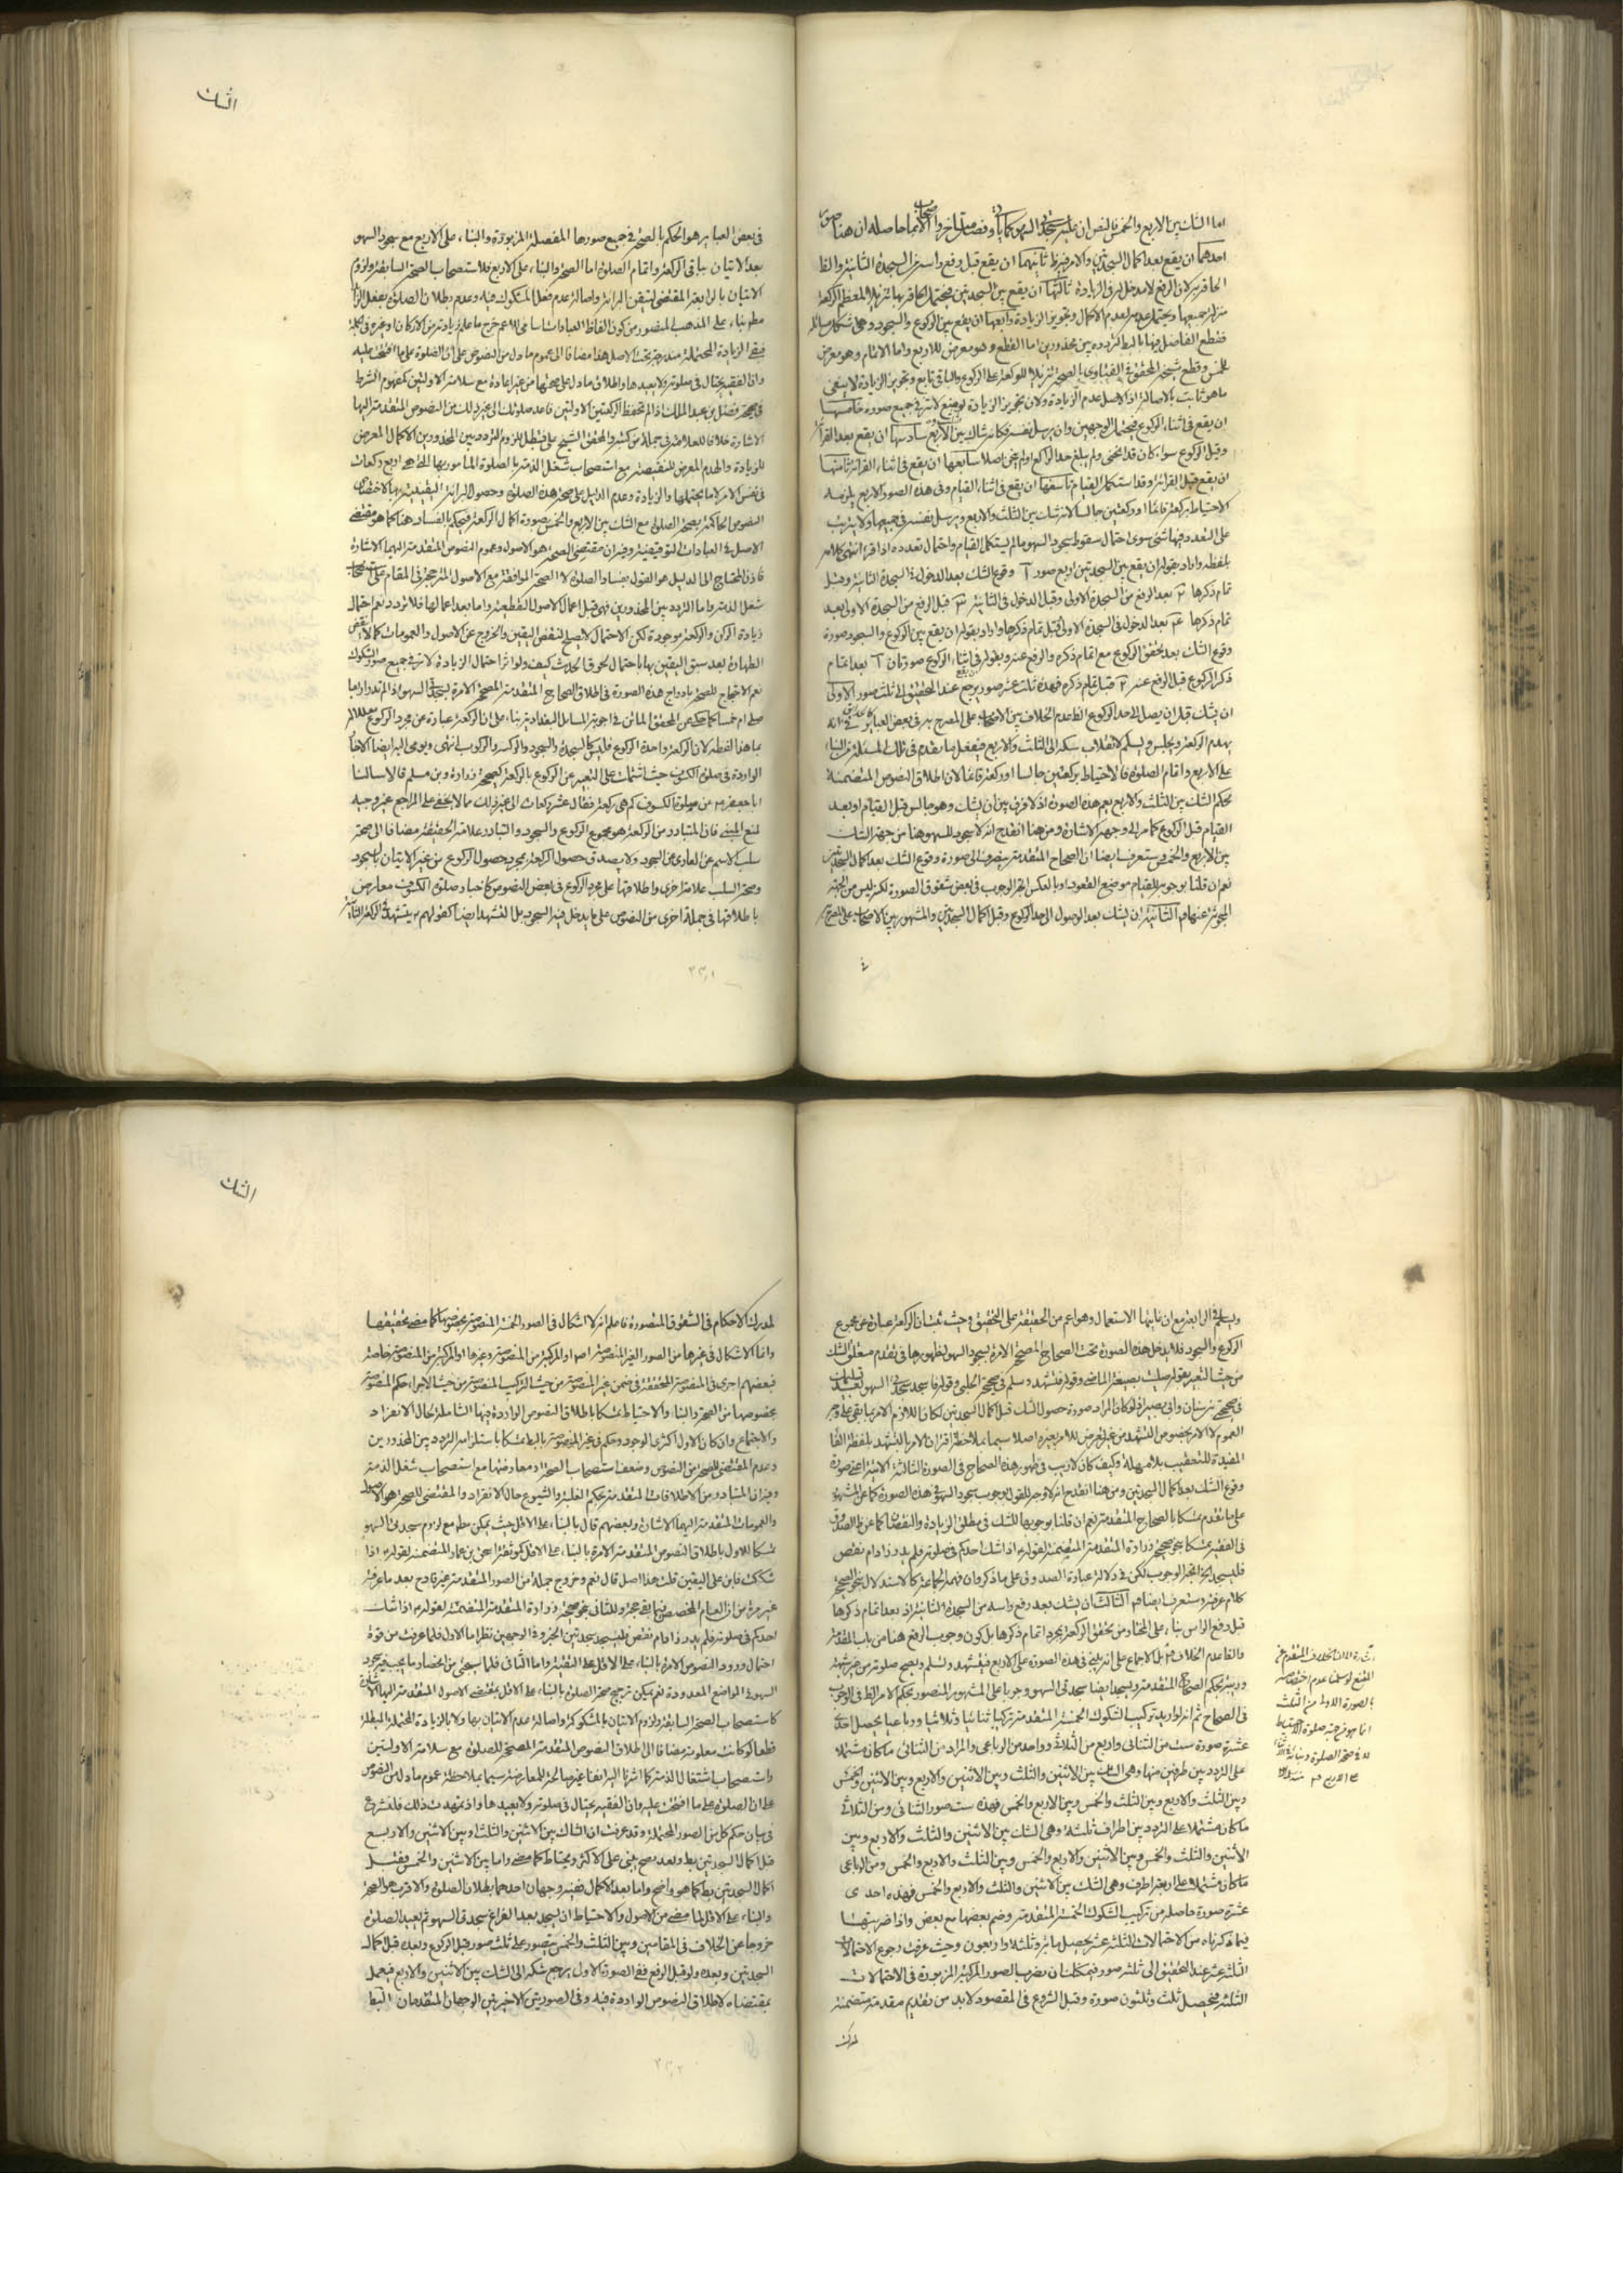 اما الشك بين الاربع والخمس فالنص ان عليه سجدتي السهو كما ياتى
احدهما ان يقع بعد اكمال السجدتين والامر فيه ظ ثانيها ان يقع قبل رفع راسه من السجدة الثانية والظ
الحاقه به لان الرفع لا مدخل له في الزيادة ثالثها ان يقع بين السجدتين فيحتمل الحاقه بها تنزيلا لمعظم الركعة
منزلة جميعها ويحتمل عدمه لعدم الاكمال وتجويز الزيادة رابعها ان يقع بين الركوع والسجود وهى
فقطع الفاضل فيها بالبط لتردده بين محذورين اما القطع وهو معرض للاربع واما الاتمام وهو معرض
للخمس وقطع شيخه المحقق في الفتاوى بالصحة تنزيلا للركعة على الركوع والباقى تابع وتجويز الزيادة لا ينفى
ما هو ثابت بالاصالة اذ الاصل عدم الزيادة ولان تجويز الزيادة لو منع لاثر في جميع صوره خامسها
ان يقع فى اثناء الركوع فيحتمل الوجهين وان يرسل نفسه فكانه شاك بين الاربع سادسها ان يقع بعد القرائة
وقبل الركوع سواء كان قد انحنى ولم يبلغ حد الراكع او لم ينحن اصلا سابعها ان يقع فى اثناء القرائة ثامنها
ان يقع قبل القرائة وقد استكمل القيام تاسعها ان يقع فى اثناء القيام وفى هذه الصور الاربع يلزمه
الاحتياط بركعة قائما او ركعتين جالسا لانه شك بين الثلث والاربع ويرسل نفسه فى جميعها ولا يترتب
على التعدد فيها شئ سوى احتمال سقوط سجود السهو ما لم يستكمل القيام واحتمال تعدده اذا قرء انتهى كلامه
بلفظه واراد بقوله ان يقع بين السجدتين اربع صور ١ وقوع الشك بعد الدخول فى السجدة الثانية وقبل
تمام ذكرها ٢ بعد الرفع من السجدة الاولى وقبل الدخول فى الثانية ٣ قبل الرفع من السجدة الاولى بعد
تمام ذكرها ٤ بعد الدخول فى السجدة الاولى قبل تمام ذكرها واراد بقوله ان يقع بين الركوع والسجود صورة
وقوع الشك بعد تحقق الركوع مع اتمام ذكره والرفع عنه وبقوله فى اثناء الركوع صورتان ١ بعد اتمام
ذكر الركوع قبل الرفع عنه ٢ قبل اتمام ذكره فهذه ثلث عشر صور يرجع عند التحقيق الى ثلث صور الاولى
ان يشك قبل ان يصل الى حد الركوع الظ عدم الخلاف بين الاصحاب على المصرح به فى بعض العباير فى انه
يهدم الركعة ويجلس ويسلم لانقلاب شكه الى الثلث والاربع فيفعل ما تقدم فى تلك المسئلة من البناء
على الاربع واتمام الصلوة فالاحتياط بركعتين جالسا او ركعة قائما لان اطلاق النصوص المتضمنة
لحكم الشك بين الثلث والاربع يعم هذه الصورة اذ لا فرق بين ان يشك وهو جالس قبل القيام او بعد
القيام قبل الركوع كما مر الى وجهه الاشارة ومن هنا انقدح انه لا سجود للسهو هنا من جهة الشك
بين الاربع والخمس وستعرف ايضا ان الصحاح المتقدمة منصرف الى صورة وقوع الشك بعد اكمال السجدتين
نعم ان قلنا بوجوبه للقيام موضع القعود او بالعكس اتجه الوجوب فى بعض شقوق الصورة لكنه ليس من الجهة
المبحوثة عنها هنا الثانية ان يشك بعد الوصول الى حد الركوع وقبل اكمال السجدتين والمشهور بين الاصحاب على المصرح به
الشك
فى بعض العباير هو الحكم بالصحة فى جميع صورها المفصلة المزبورة والبناء على الاربع مع سجود السهو
بعد الاتيان بباقى الركعة واتمام الصلوة اما الصحة والبناء على الاربع فلاستصحاب الصحة السابقة ولزوم
الاتيان بالرابعة المقتضى لتيقن البرائة واصالة عدم فعل المشكوك فيه وعدم بطلان الصلوة بفعل الزائد
مطم بناء على المذهب المنصور من كون الفاظ العبادات اسامى للاعم خرج ما علم زيادته من الاركان وغيره فى
فبقى الزيادة المحتملة مندرجة تحت الاصل هذا مضافا الى عموم ما دل من النصوص على ان الصلوة على ما افتتحت عليه
وان الفقيه يحتال فى صلوته ولا يعيدها واطلاق ما دل على صحتها من غير اعادة مع سلامة الاولتين كمفهوم الشرط
فى صحيح فضل بن عبد الملك اذا لم تحفظ الركعتين الاولتين فاعد صلوتك الى غير ذلك من النصوص المتقدمة اليها
الاشارة خلافا للعلامة فى جملة من كتبه والمحقق الشيخ على فتبطل للزوم التردد بين المحذورين الاكمال المعرض
للزيادة والهدم المعرض للنقيصة مع استصحاب شغل الذمة بالصلوة المامور بها التى هى اربع ركعات
فى نفس الامر لا ما يحتملها والزيادة وعدم الدليل على صحة هذه الصلوة وحصول البرائة اليقينية بها لاختصاص
النصوص الحاكمة بصحة الصلوة مع الشك بين الاربع والخمس بصورة اكمال الركعة فيحكم بالفساد هنا كما هو مقتضى
الاصل فى العبادات التوقيفية وفيه ان مقتضى الصحة هو الاصول وعموم النصوص المتقدمة اليهما الاشارة
فاذن المحتاج الى الدليل هو القول بفساد الصلوة لا الصحة الموافقة مع الاصول المترجحة فى المقام على استصحاب
شغل الذمة واما التردد بين المحذورين فهو قبل اعمال الاصول القطعية واما بعد اعمالها فلا تردد نعم احتمال
زيادة الركن والركعة موجودة لكن الاحتمال لا يصلح لنقض اليقين والخروج عن الاصول والعمومات كما لا ينقض
الطهارة بعد سبق اليقين بها باحتمال لحوق الحدث كيف ولو اثر احتمال الزيادة لاثر فى جميع صور الشكوك
نعم الاحتجاج للصحة بادراج هذه الصورة فى اطلاق الصحاح المتقدمة المصححة الامرة بسجدتى السهو اذا لم تدر اربعا
صليت ام خمسا كما حكى عن المحقق المائن فى اجوبة المسائل البغدادية بناء على ان الركعة عبارة عن مجرد الركوع
بما هذا لفظه لان الركعة واحدة الركوع فليس كالسجدة والسجود والركسه والركوب انتهى ويومى اليه ايضا الاخبار
الواردة فى صلوة الكسوف حيث اشتملت على التعبير عن الركوع بالركعة كصحيحة زرارة وبن مسلم قالا سالنا
ابا جعفر ع من صلوة الكسوف كم هى ركعة فقال عشر ركعات الى غير ذلك مما لا يخفى على المراجع غير وجيه
لمنع المبنى فان المتبادر من الركعة هو مجموع الركوع والسجود والتبادر علامة الحقيقة مضافا الى صحة
سلب الاسم عن العارى عن السجود ولا يصدق حصول الركعة بمجرد حصول الركوع من غير الاتيان بالسجود
وصحة السلب علامة اخرى واطلاقها على مجرد الركوع فى بعض النصوص كاخبار صلوة الكسوف معارض
باطلاقها فى جملة اخرى من النصوص على ما يدخل فيه السجود بل التشهد ايضا كقولهم ع يتشهد فى الركعة الثانية
ويسلم فى الرابعة مع ان غايتها الاستعمال وهو اعم من الحقيقة على التحقيق وحيث ثبت ان الركعة عبارة عن مجموع
الركوع والسجود فلا يدخل هذه الصورة تحت الصحاح المصححة الامرة بسجود السهو لظهورها فى تقدم متعلق الشك
من حيث التعبير بقوله صليت بصيغة الماضى وقوله فتشهد وسلم فى صحيحة الحلبى وقوله فاسجد سجدتى السهو بعد تسليمك
فى صحيحى بن سنان وابى بصير اذ لو كان المراد صورة حصول الشك قبل اكمال السجدتين لكان اللازم الامر بما بقى على وجه
العموم لا الامر بخصوص التشهد من غير تعرض للامر بغيره اصلا سيما بملاحظة اقتران الامر بالتشهد بلفظة الفاء
المفيدة للتعقيب بلا مهلة وكيف كان لا ريب فى ظهور هذه الصحاح فى الصورة الثالثة الاتية اعنى صورة
وقوع الشك بعد اكمال السجدتين ومن هنا انقدح انه لا وجه للقول بوجوب سجود السهو فى هذه الصورة كما عن المشهور
على ما تقدم تمسكا بالصحاح المتقدمة نعم ان قلنا بوجوبها للشك فى مطلق الزيادة والنقصان كما عن ظ الصدوق
فى الفقيه تمسكا بنحو صحيح زرارة المتقدمة المتضمنة لقوله ع اذا شك احدكم فى صلوته فلم يدر زاد ام نقص
فليسجد اتجه الوجوب لكن فى دلالة عبارة الصدوق على ما ذكر وان فهمه الجماعة كالاستدلال بنحو الصحيح
كلام عرفته وستعرف ايضا هنا الثالثة ان يشك بعد رفع راسه من السجدة الثانية او بعد اتمام ذكرها
قبل رفع الراس بناء على المختار من تحقق الركعة بمجرد اتمام ذكرها بل كون وجوب الرفع هنا من باب المقدمة
والظ عدم الخلاف بل الاجماع على انه يبنى فى هذه الصورة على الاربع فيتشهد ويسلم ويصح صلوته من غير شبهة
وريبة بحكم الصحاح المتقدمة ويسجد ايضا سجدتى السهو وجوبا على المشهور المنصور بحكم الامر الظ فى الوجوب
فى الصحاح ثم انه لو اريد تركيب الشكوك الخمسة المتقدمة تركيبا ثنائيا وثلاثيا ورباعيا يحصل احدى
عشرة صورة ست من الثنائى واربع من الثلاث وواحد من الرباعى والمراد من الثنائى ما كان مشتملا
على التردد بين طرفين منها وهى الشك بين الاثنين والثلث وبين الاثنين والاربع وبين الاثنين والخمس
وبين الثلث والاربع وبين الثلث والخمس وبين الاربع والخمس فهذه ست صور الثنائى ومن الثلاثى
ما كان مشتملا على التردد بين اطراف ثلثة وهى الشك بين الاثنين والثلث والاربع وبين
الاثنين والثلث والخمس وبين الاثنين والاربع والخمس وبين الثلث والاربع والخمس ومن الرباعى
ما كان مشتملا على اربعة اطراف وهى الشك بين الاثنين والثلث والاربع والخمس فهذه احدى
عشرة صورة حاصلة من تركيب الشكوك الخمسة المتقدمة وضم بعضها مع بعض واذا ضربتها
فيما ذكرناه من الاحتمالات الثلثة عشر يحصل مائة وثلثة واربعون وحيث عرفت رجوع الاحتمالات
الثلثة عشر عند التحقيق الى ثلثة صور فيمكننا ان نضرب الصور المركبة المزبورة فى الاحتمالات
الثلثة فيحصل ثلث وثلثون صورة وقبل الشروع فى المقصود لا بد من تقديم مقدمة متضمنة
لمدرك
الشك
لمدرك الاحكام فى الشقوق المتصورة فاعلم انه لا اشكال فى الصور الخمسة المنصوصة بخصوصها كما مضى تحقيقها
وانما الاشكال فى غيرها من الصور الغير المنصوصة اصلا او المركبة من المنصوصة وغيرها او المركبة من المنصوصة خاصة
فبعضهم اجرى فى المنصوصة المتحققة فى ضمن غير المنصوصة من حيث التركيب المنصوصة من حيث الاجزاء حكم المنصوصة
بخصوصها من الصحة والبناء والاحتياط تمسكا باطلاق النصوص الواردة فيها الشاملة لحال الانفراد
والاجتماع وان كان الاول اكثرى الوجود وحكم فى غير المنصوصة بالبط تمسكا باستلزامه التردد بين المحذورين
وعدم المقتضى للصحة من النصوص وضعف استصحاب الصحة او معارضتها مع استصحاب شغل الذمة
وفيه ان المتبادر من الاطلاقات المتقدمة بحكم الغلبة والشيوع حال الانفراد والمقتضى للصحة هو الاصول
والعمومات المتقدمة اليها الاشارة وبعضهم قال بالبناء على الاقل حيث يمكن مطم مع لزوم سجدتى السهو
تمسكا للاول باطلاق النصوص المتقدمة الامرة بالبناء على الاقل كموثقة اسحق بن عمار المتضمنة لقوله ع اذا
شككت فابن على اليقين قلت هذا اصل قال نعم وخروج جملة من الصور المتقدمة غير قادح بعد ما عرفت
غير مرة من ان العام المخصص فيما بقى حجة وللثانى بنحو صحيحة زرارة المتقدمة المتضمنة لقوله ع اذا شك
احدكم فى صلوته فلم يدر زاد ام نقص فليسجد سجدتين الخبر وفى الوجهين نظر اما الاول فلما عرفت من قوة
احتمال ورود النصوص الامرة بالبناء على الاقل على التقية واما الثانى فلما سيجئ من انحصار ما يجب فيه سجود
السهو فى المواضع المعدودة نعم يمكن ترجيح صحة الصلوة بالبناء على الاقل بمقتضى الاصول المتقدمة اليها الاشارة
كاستصحاب الصحة السابقة ولزوم الاتيان بالمشكوكة واصالة عدم الاتيان بها ولا بالزيادة المحتملة المبطلة
قطعا لو كانت معلومة مضافا الى اطلاق النصوص المتقدمة المصححة للصلوة مع سلامة الاولتين
واستصحاب اشتغال الذمة كما اشرنا اليه انفا غير صالحة للمعارضة سيما بملاحظة عموم ما دل من النصوص
على ان الصلوة على ما افتتحت عليه وان الفقيه يحتال فى صلوته ولا يعيدها واذ تمهدت ذلك فلنشرع
فى بيان حكم كل من الصور المحتملة وقد عرفت ان الشاك بين الاثنين والثلث او بين الاثنين والاربع
قبل اكمال السجدتين بط وبعده صح يبنى على الاكثر ويحتاط كما مضى واما بين الاثنين والخمس فقبل
اكمال السجدتين بط كما هو واضح واما بعد الاكمال ففيه وجهان احدهما بطلان الصلوة والاقرب هو الصحة
والبناء على الاقل لما مضى من الاصول والاحتياط ان يسجد بعد الفراغ سجدتى السهو ثم يعيد الصلوة
خروجا عن الخلاف فى المقامين وبين الثلث والخمس يتصور على ثلث صور قبل الركوع وبعده قبل اكمال
السجدتين وبعده ولو قبل الرفع ففى الصورة الاولى يرجع شكه الى الشك بين الاثنين والاربع فيعمل
بمقتضاه لاطلاق النصوص الواردة فيه وفى الصورتين الاخيرتين الوجهان المتقدمان البط